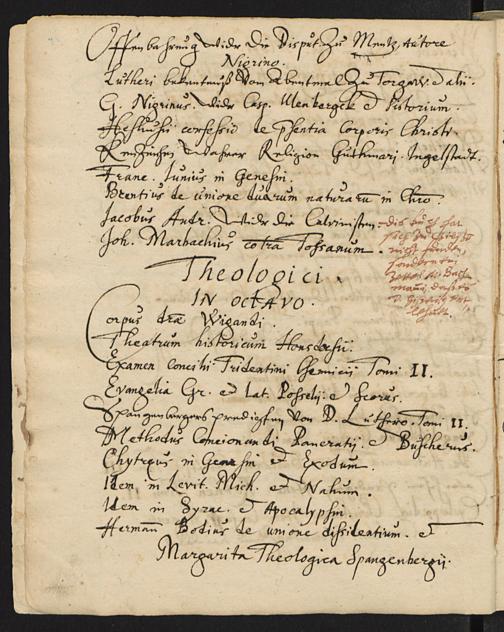 Offenbahrung wider die Disput. zu Mentz Autore
Nigrino.
Lutheri bekentnuß Vom Abentmal zu Torgaw. et alii.
G. Nigrinus wider Casp. Ulenbergck et Pistorium.
Heshusii confessio de psentia Corporis Christi.
Kenzeichen wahrer Religion Guthmari. Ingelstadt.
Franc. Iunius in Genesin.
Brentius de unione duarum naturarum in Chro.
Jacobus Andr. wider die Calvinisten.
Joh. Marbachius cotra Tossanum.
dis buch hat
sich
nicht finden,
sondern
Theologici.
IN OCTAVO.
Corpus drae Wigandi.
Theatrum historicum Honsdorfii.
Examen Concilii Tridentini Chemnicii Tomi II.
Evangelia Gr. et Lat. Posselij. et Scorus.
Spangenbergers predichten Von D. Luthero. Tomi II.
Methodus Concionandi Pancratij. et Buscherus.
Chytreus in Genesin et Exodum.
Idem in Levit. Mich. et Nahum.
Idem in Syrac. et Apocalypsin.
Herman Bodius de unione dissidentium. et
Margarita Theologica Spangenbergij.